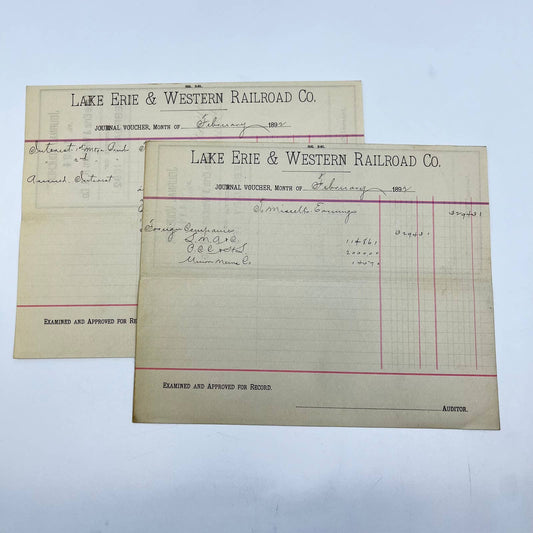 LAKE ERIE & WESTERN RAILROAD CO.
JOURNAL VOUCHER, MONTH OF February 1892
Interest
Accrued Interest
EXAMINED AND APPROVED FOR RE
LAKE ERIE & WESTERN RAILROAD CO.
JOURNAL VOUCHER, MONTH OF February 1892
To Miscell. Earnings 329431
Foreign Companies 329431
L N A & C 114861
P C C & St L 200000
Union News Co 14570
EXAMINED AND APPROVED FOR RECORD.
AUDITOR.